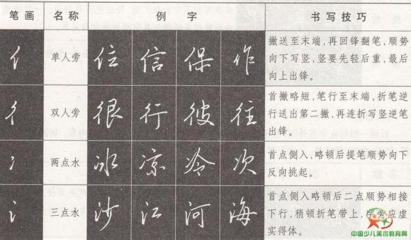 笔画 名称 例字 书写技巧
亻 单人旁 位 信 保 作
撇送至末端,再回锋翻笔,顺势
向下写竖,竖要先轻后重,最后
向上出锋。
彳 双人旁 很 行 彼 往
首撇略短,笔行至末端,折笔逆
行送出第二撇,再连折写竖逆笔
出锋。
冫 两点水 冰 凉 冷 次
首点侧入,略顿后提笔顺势向下
反向挑起。
氵 三点水 沙 江 河 海
首点侧入略顿后二点顺势相接
下行,稍顿折笔带上,
旁应虚
实得体。
中国少儿美术教育网